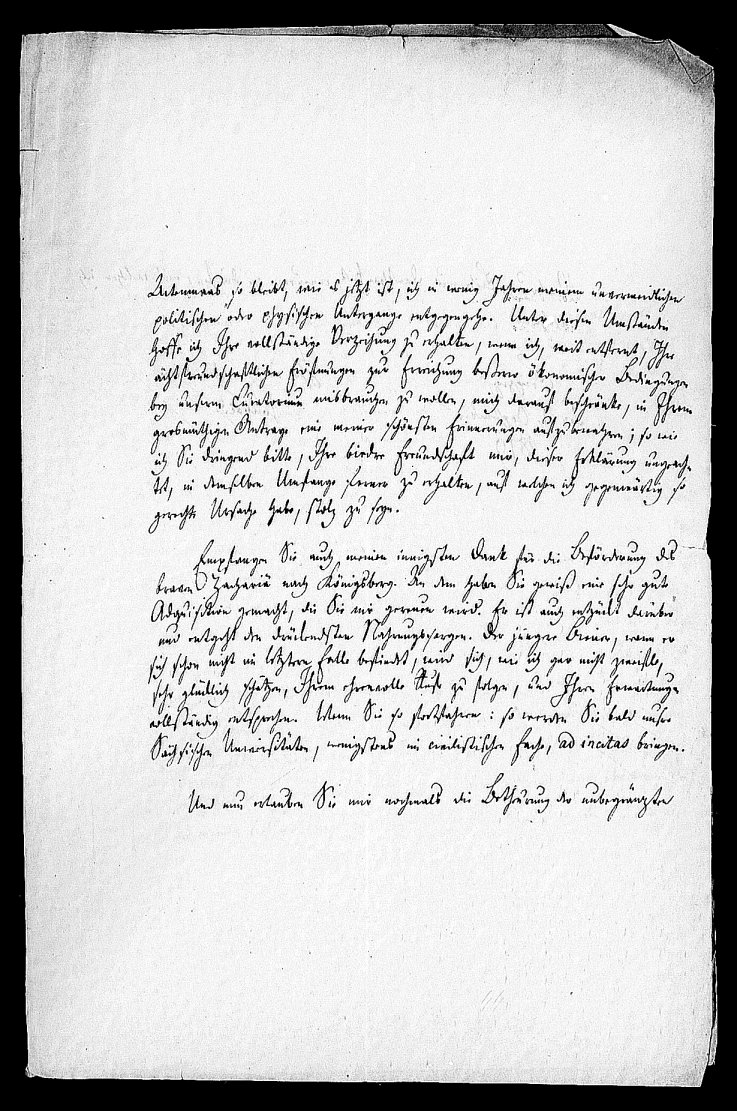 so bleibt, wie es jetzt ist, ich in wenig Jahren meinem unvermeidlichen
politischen oder physischen Untergange entgegengehe. Unter diesen Umständen
hoffe ich Ihre vollständige Verzeihung zu erhalten, wenn ich, weit entfernt, Ihre
ächtfreundschaftlichen Eröffnungen zur Erreichung besserer ökonomischer Bedingungen
bey unserm Curatorium misbrauchen zu wollen, mich darauf beschränke, in Ihrem
grosmüthigen Antrage eine meiner schönsten Erinnerungen aufzubewahren; so wie
ich Sie dringend bitte, Ihre biedre Freundschaft mir, dieser Erklärung ungeach-
tet, in demselben Umfange ferner zu erhalten, auf welchen ich gegenwärtig so
gerechte Ursache habe, stolz zu seyn.
Empfangen Sie auch meinen innigsten Dank für die Beförderung des
braven Zachariä nach Königsberg. An dem haben Sie gewiß eine sehr gute
Adquisition gemacht, die Sie nie gereuen wird. Er ist auch entzückt darüber
und entgeht den drückendsten Nahrungssorgen. Der jüngere Biener, wenn er
sich schon nicht im letztern Falle befindet, wird sich, wie ich gar nicht zweifle,
sehr glücklich schätzen, Ihrem ehrenvolle Rufe zu folgen, und Ihren Erwartungen
vollständig entsprechen. Wenn Sie so fortfahren: so werden Sie bald unsre
Sächsischen Universitäten, wenigstens im civilistischen Fache, ad incitas bringen.
Und nun erlauben Sie mir nochmals die Betheurung der unbegränzten